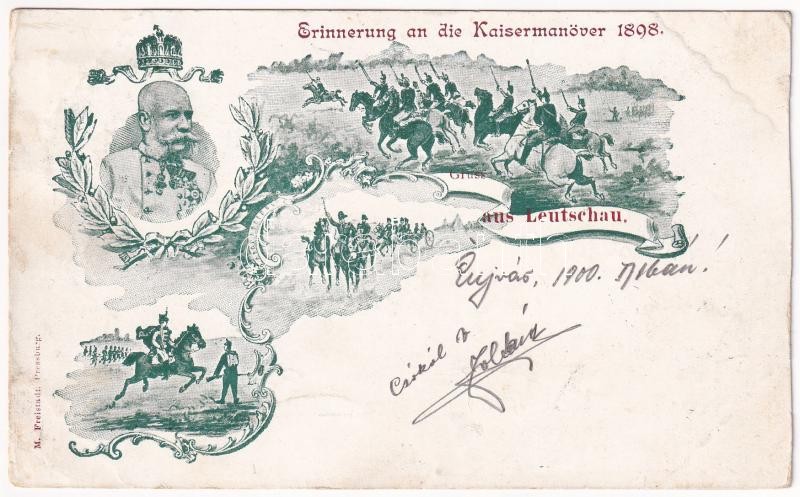 Erinnerung an die Kaisermanöver 1898.
Gruss
aus Leutschau.
1900.
Csókol
Zoltán
M. Freistadt, Pressburg.